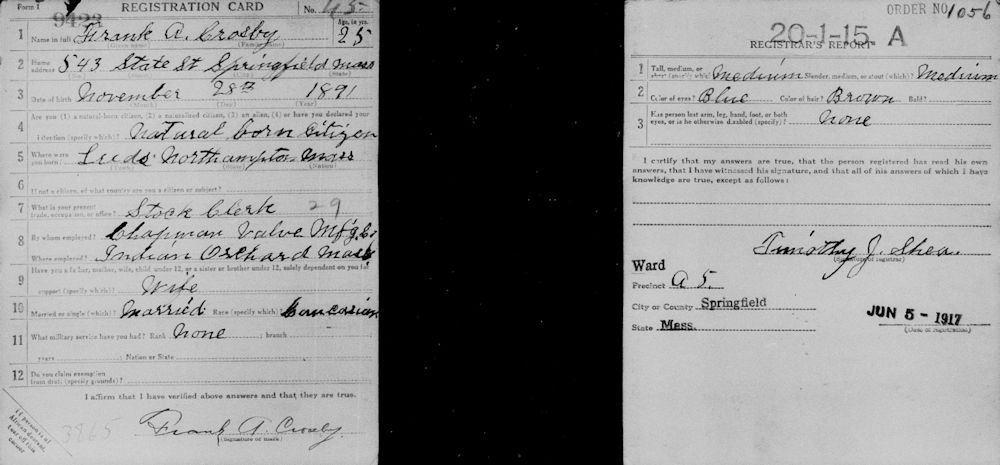 Form 1 REGISTRATION CARD No. 45
9423 Age, in yrs.
1 Name in full Frank A. Crosby 25
(Given name) (Family name)
2 Home address 543 State St Springfield Mass
(No.) (Street) (City) (State)
3 Date of birth November 28th 1891
(Month) (Day) (Year)
4 Are you (1) a natural-born citizen, (2) a naturalized citizen, (3) an alien, (4) or have you declared your
intention (specify which)? Natural born Citizen
5 Where were you born? Leeds Northampton Mass
(Town) (State) (Nation)
6 If not a citizen, of what country are you a citizen or subject?
7 What is your present trade, occupation, or office? Stock Clerk 29
8 By whom employed? Chapman Valve Mf'g. Co
Where employed? Indian Orchard Mass
9 Have you a father, mother, wife, child under 12, or a sister or brother under 12, solely dependent on you for
support (specify which)? Wife
10 Married or single (which)? Married Race (specify which)? Caucasian
11 What military service have you had? Rank None ; branch
years ; Nation or State
12 Do you claim exemption from draft (specify grounds)?
I affirm that I have verified above answers and that they are true.
If person is of African descent, tear off this corner
3865
Frank A. Crosby
(Signature or mark)
ORDER NO 1056
20-1-15 A
REGISTRAR'S REPORT
1 Tall, medium, or short (specify which)? Medium Slender, medium, or stout (which)? Medium
2 Color of eyes? Blue Color of hair? Brown Bald?
3 Has person lost arm, leg, hand, foot, or both eyes, or is he otherwise disabled (specify)? None
I certify that my answers are true, that the person registered has read his own
answers, that I have witnessed his signature, and that all of his answers of which I have
knowledge are true, except as follows:
Timothy J. Shea.
(Signature of registrar)
Ward
Precinct A 5.
City or County Springfield
State Mass.
JUN 5 - 1917
(Date of registration)